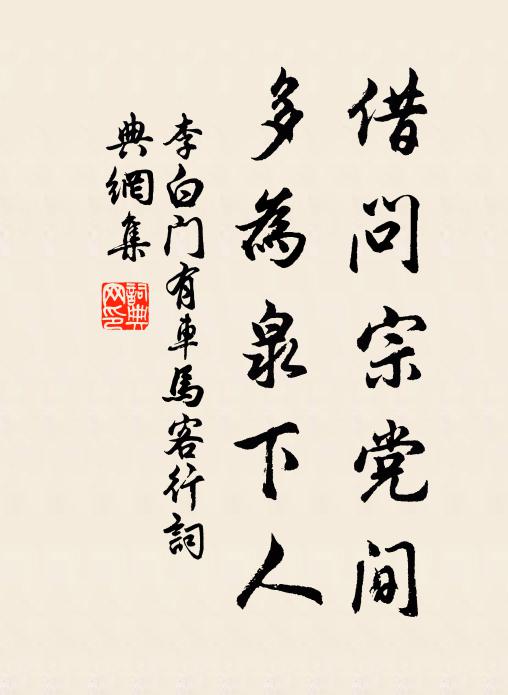 借问宗党间
多為泉下人
李白门有車馬客行詞
典網集
詞典網印